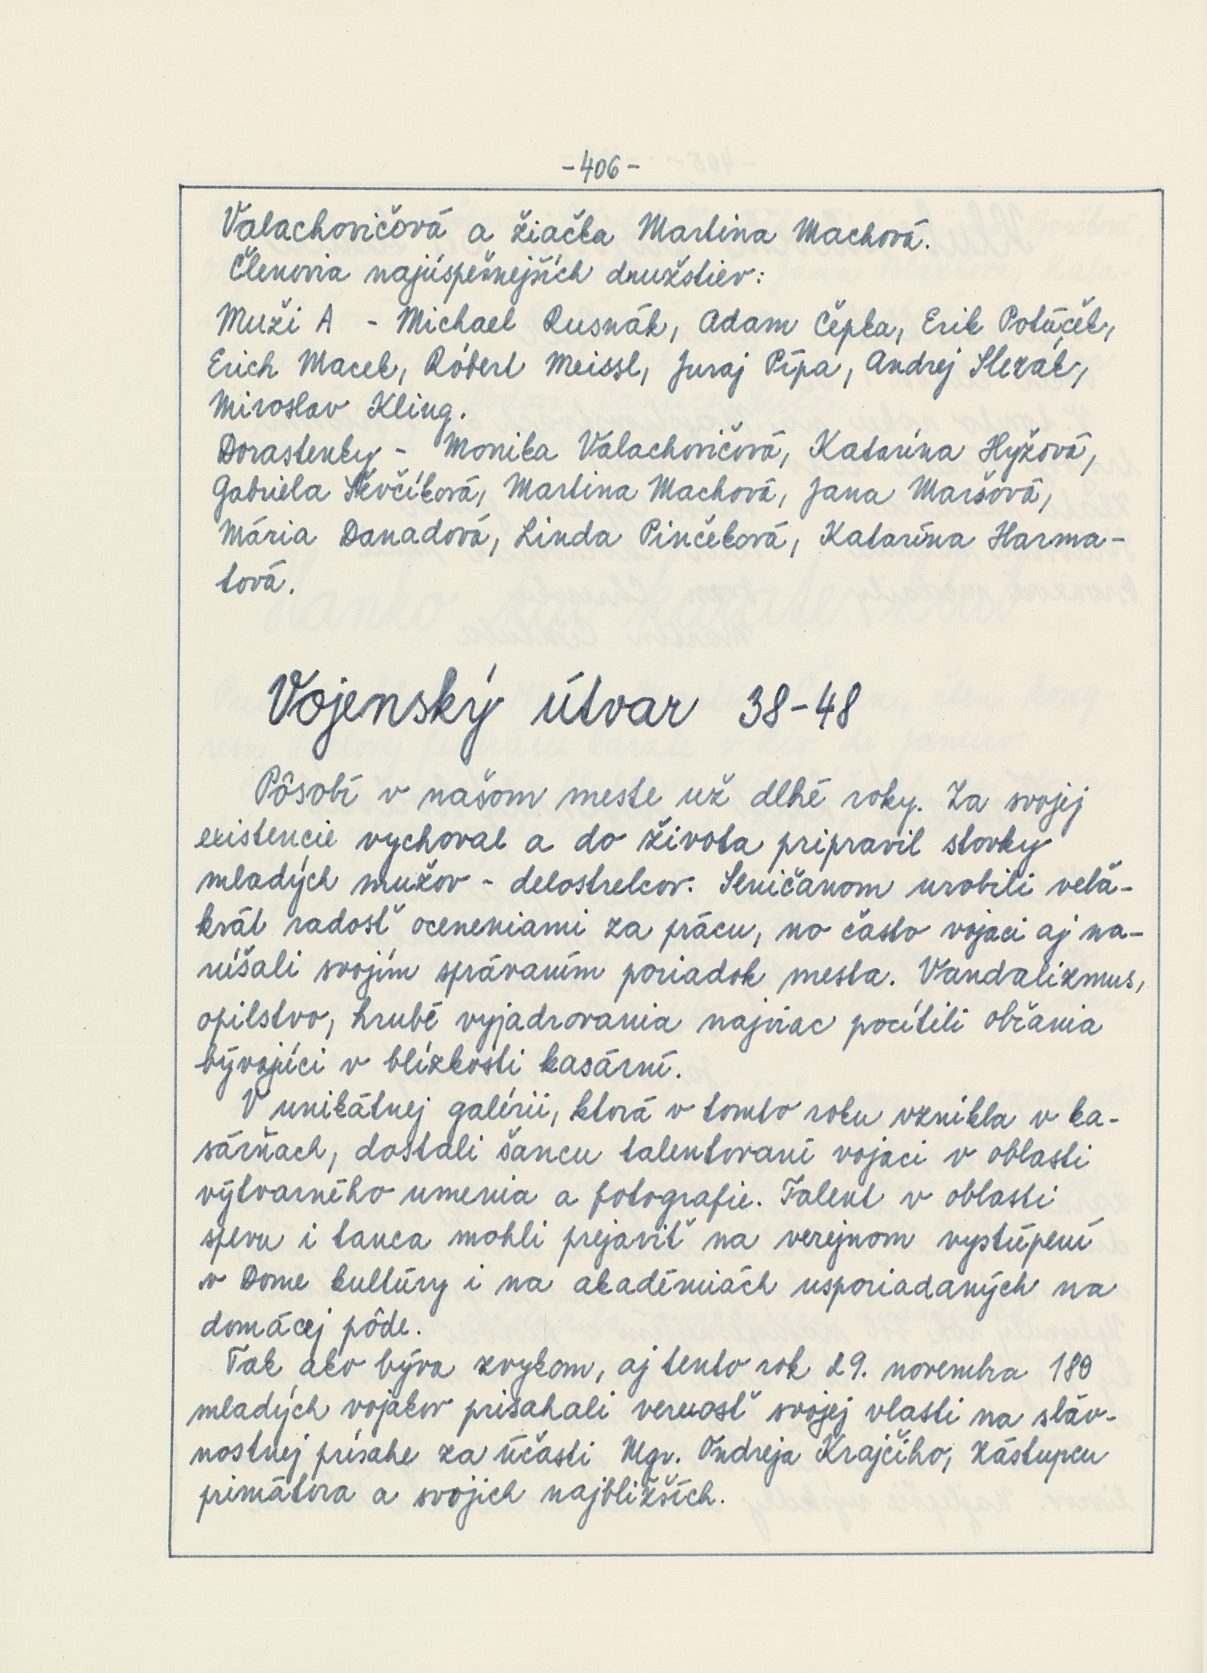 -406-
Valachovičová a žiačka Martina Machová.
Členovia najúspešnejších družstiev:
Muži A - Michael Rusnák, Adam Čepka, Erik Potúček,
Erich Macek, Róbert Meissl, Juraj Pípa, Andrej Slezák,
Miroslav Kling.
Dorastenky - Monika Valachovičová, Katarína Hyžová,
Gabriela Ševčíková, Martina Machová, Jana Maršová,
Mária Danadová, Linda Pinčeková, Katarína Harma-
tová.
Vojenský útvar 38-48
Pôsobí v našom meste už dlhé roky. Za svojej
existencie vychoval a do života pripravil stovky
mladých mužov - delostrelcov. Seničanom urobili veľa-
krát radosť oceneniami za prácu, no často vojaci aj na-
rúšali svojím správaním poriadok mesta. Vandalizmus,
opilstvo, hrubé vyjadrovania najviac pocítili občania
bývajúci v blízkosti kasární.
V unikátnej galérii, ktorá v tomto roku vznikla v ka-
sárňach, dostali šancu talentovaní vojaci v oblasti
výtvarného umenia a fotografie. Talent v oblasti
spevu i tanca mohli prejaviť na verejnom vystúpení
v Dome kultúry i na akadémiách usporiadaných na
domácej pôde.
Tak ako býva zvykom, aj tento rok 29. novembra 180
mladých vojakov prisahali vernosť svojej vlasti na sláv-
nostnej prísahe za účasti Mgr. Ondreja Krajčího, zástupcu
primátora a svojich najbližších.